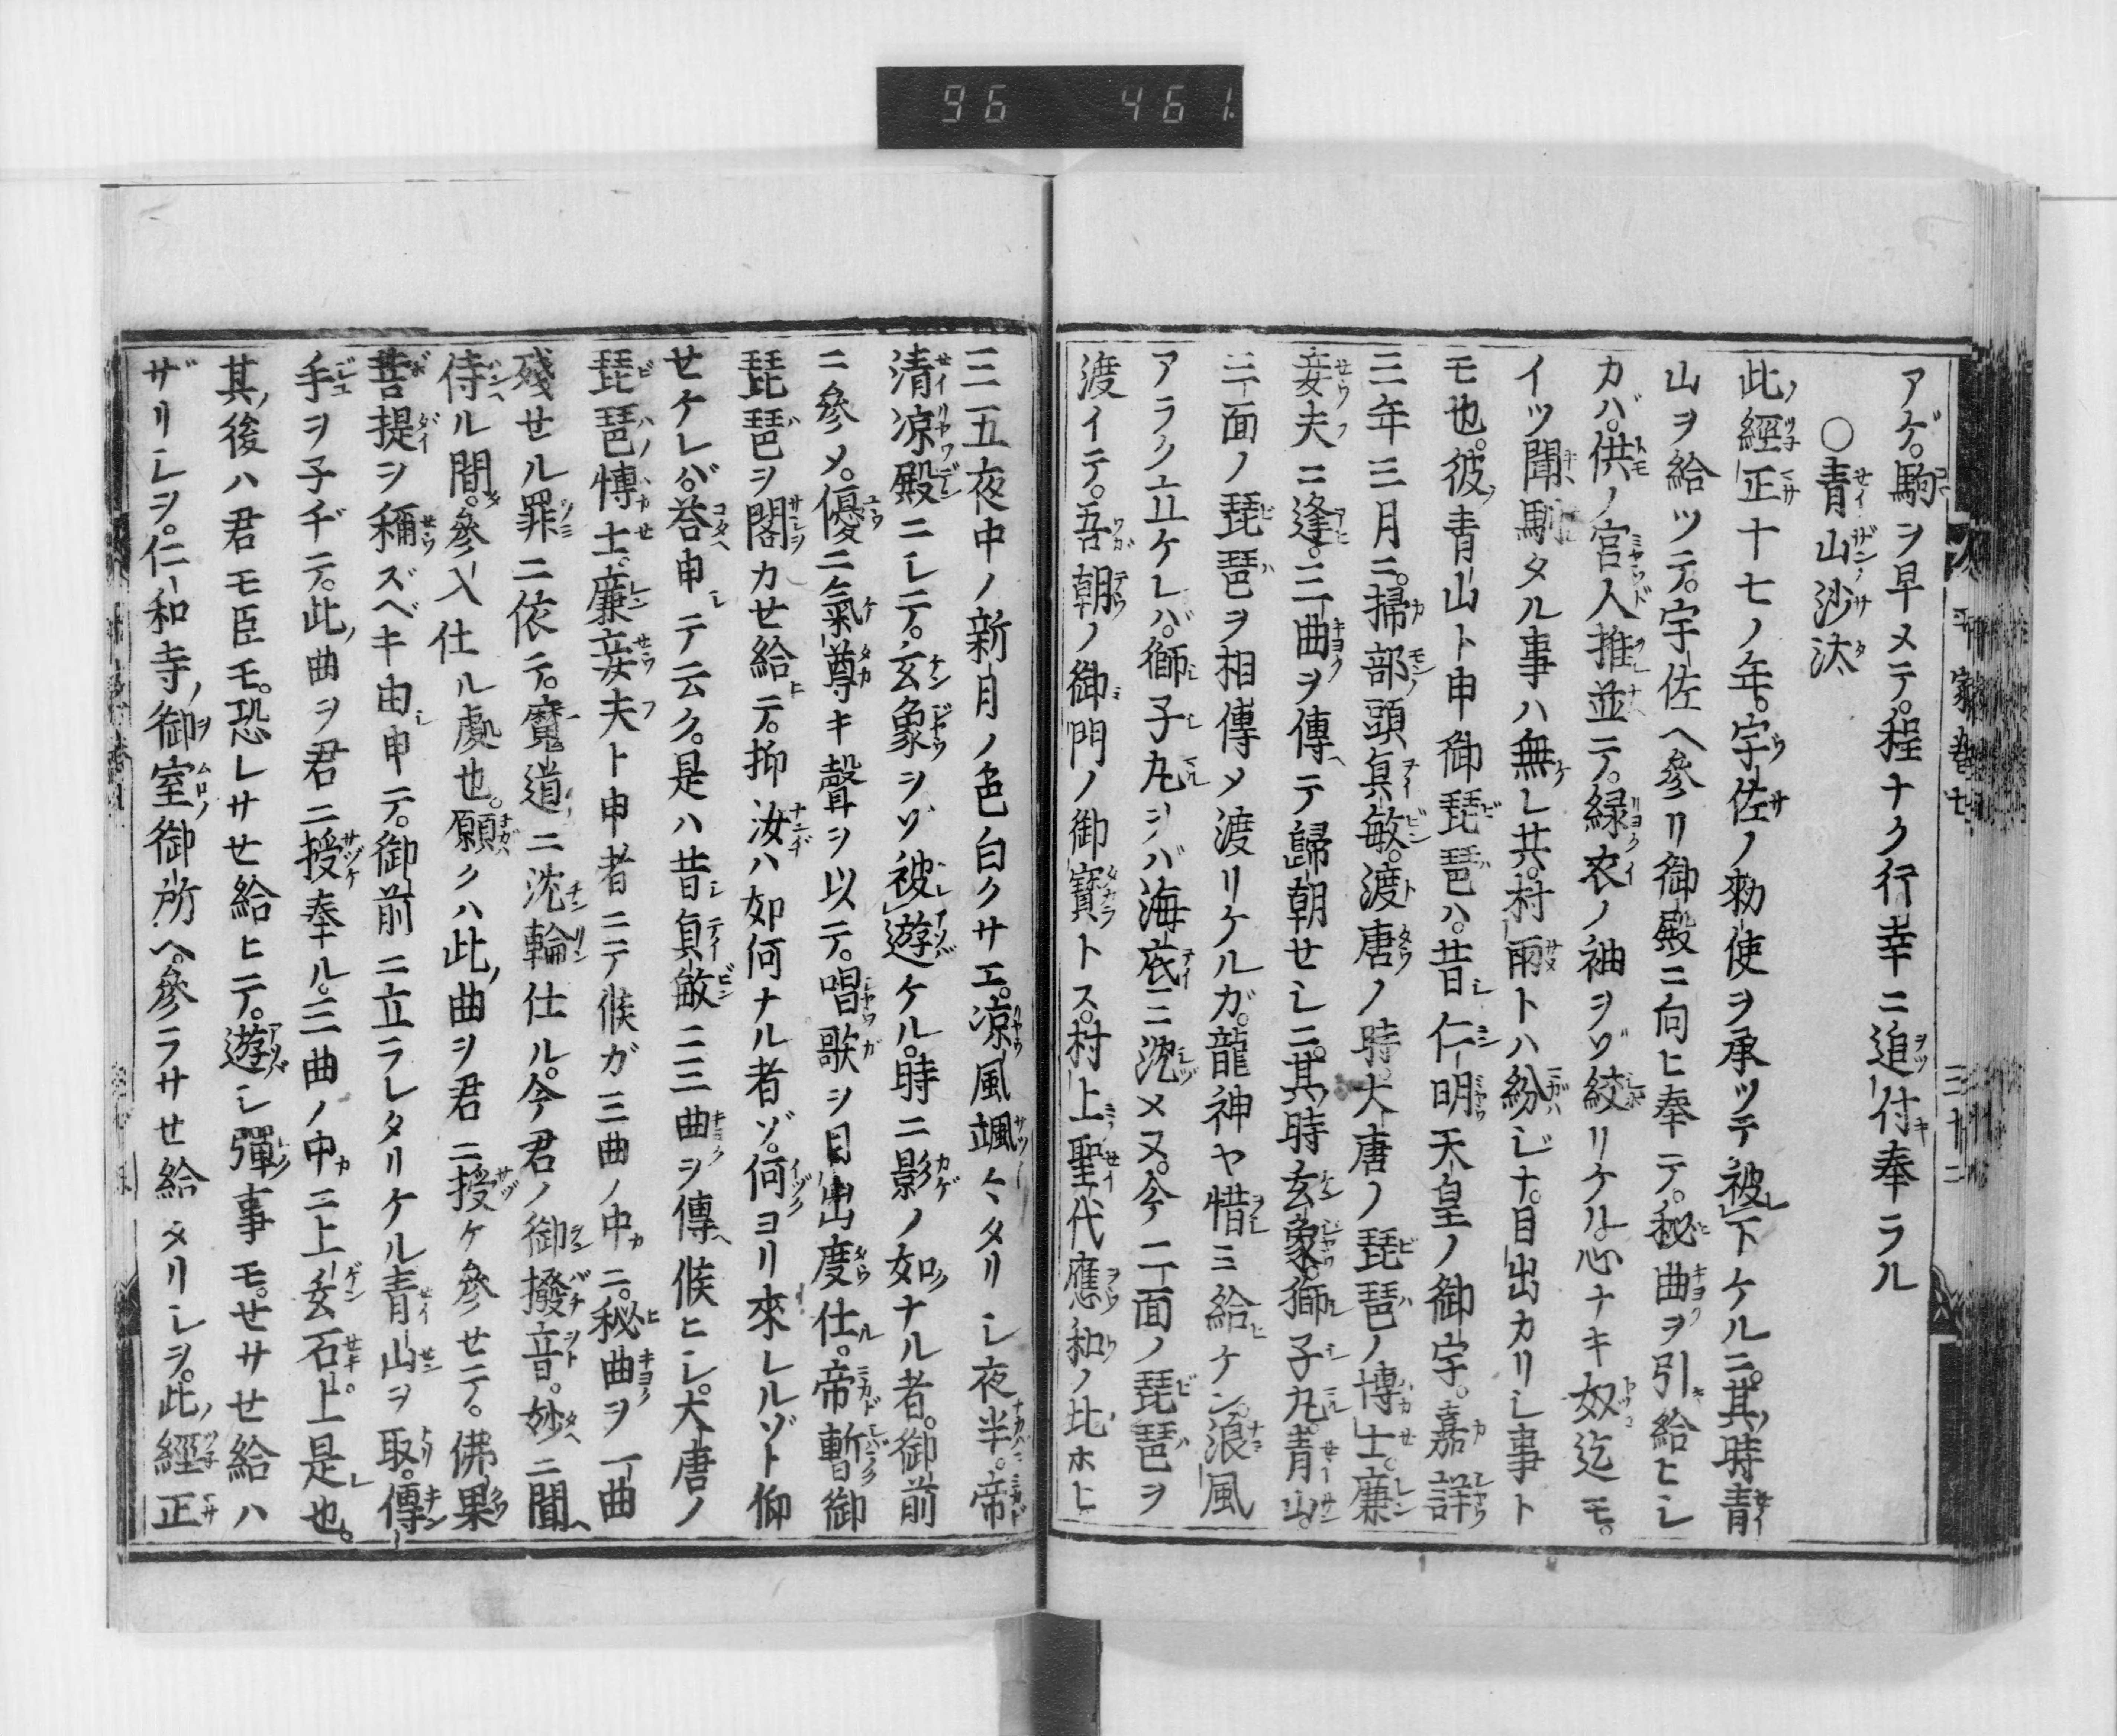 96 461
平家巻七 三十二
アゲ。駒ヲ早メテ。程ナク行幸ニ追付奉ラル
○青山沙汰
此經正十七ノ年。宇佐ノ勅使ヲ承ツテ被下ケルニ。其時青
山ヲ給ツテ。宇佐ヘ參リ御殿ニ向ヒ奉テ。秘曲ヲ引給ヒシ
カバ。供ノ宮人推並テ。緑衣ノ袖ヲゾ絞リケル。心ナキ奴迄モ。
イツ聞馴タル事ハ無レ共。村雨トハ紛ジナ。目出カリシ事ト
モ也。彼青山ト申御琵琶ハ。昔仁明天皇ノ御宇。嘉詳
三年三月ニ。掃部頭貞敏。渡唐ノ時。大唐ノ琵琶ノ博士。廉
妾夫ニ逢。三曲ヲ傳テ歸朝セシニ。其時玄象。獅子丸。青山。
三面ノ琵琶ヲ相傳メ渡リケルガ。龍神ヤ惜ミ給ヒケン。浪風
アラク立ケレバ。獅子丸ヲバ海底ニ沈メヌ。今二面ノ琵琶ヲ
渡イテ。吾朝ノ御門ノ御寳トス。村上聖代應和ノ比ホヒ
三五夜中ノ新月ノ色白クサエ。凉風颯々タリシ夜半。帝
清凉殿ニシテ。玄象ヲゾ被遊ケル。時ニ影ノ如ナル者。御前
ニ參メ。優ニ氣尊キ聲ヲ以テ。唱歌ヲ目出度仕ル。帝暫御
琵琶ヲ閣カせ給テ。抑汝ハ如何ナル者ゾ。何ヨリ來レルゾト仰
せケレバ。荅申テ云ク。是ハ昔貞敏ニ三曲ヲ傳候ヒシ。大唐ノ
琵琶博士。廉妾夫ト申者ニテ候ガ三曲ノ中ニ。秘曲ヲ一曲
殘せル罪ニ依テ。魔道ニ沈輪仕ル。今君ノ御撥音。妙ニ聞
侍ル間。參入仕ル處也。願クハ此曲ヲ君ニ授ケ參せテ。佛果
菩提ヲ稱ズベキ由申テ。御前ニ立ラレタリケル青山ヲ取。傳
手ヲ子ヂテ。此曲ヲ君ニ授奉ル。三曲ノ中ニ上玄石上是也。
其後ハ君モ臣モ。恐レサせ給ヒテ。遊シ彈事モ。せサせ給ハ
ザリシヲ。仁和寺ノ御室御所ヘ。參ラサせ給タリシヲ。此經正